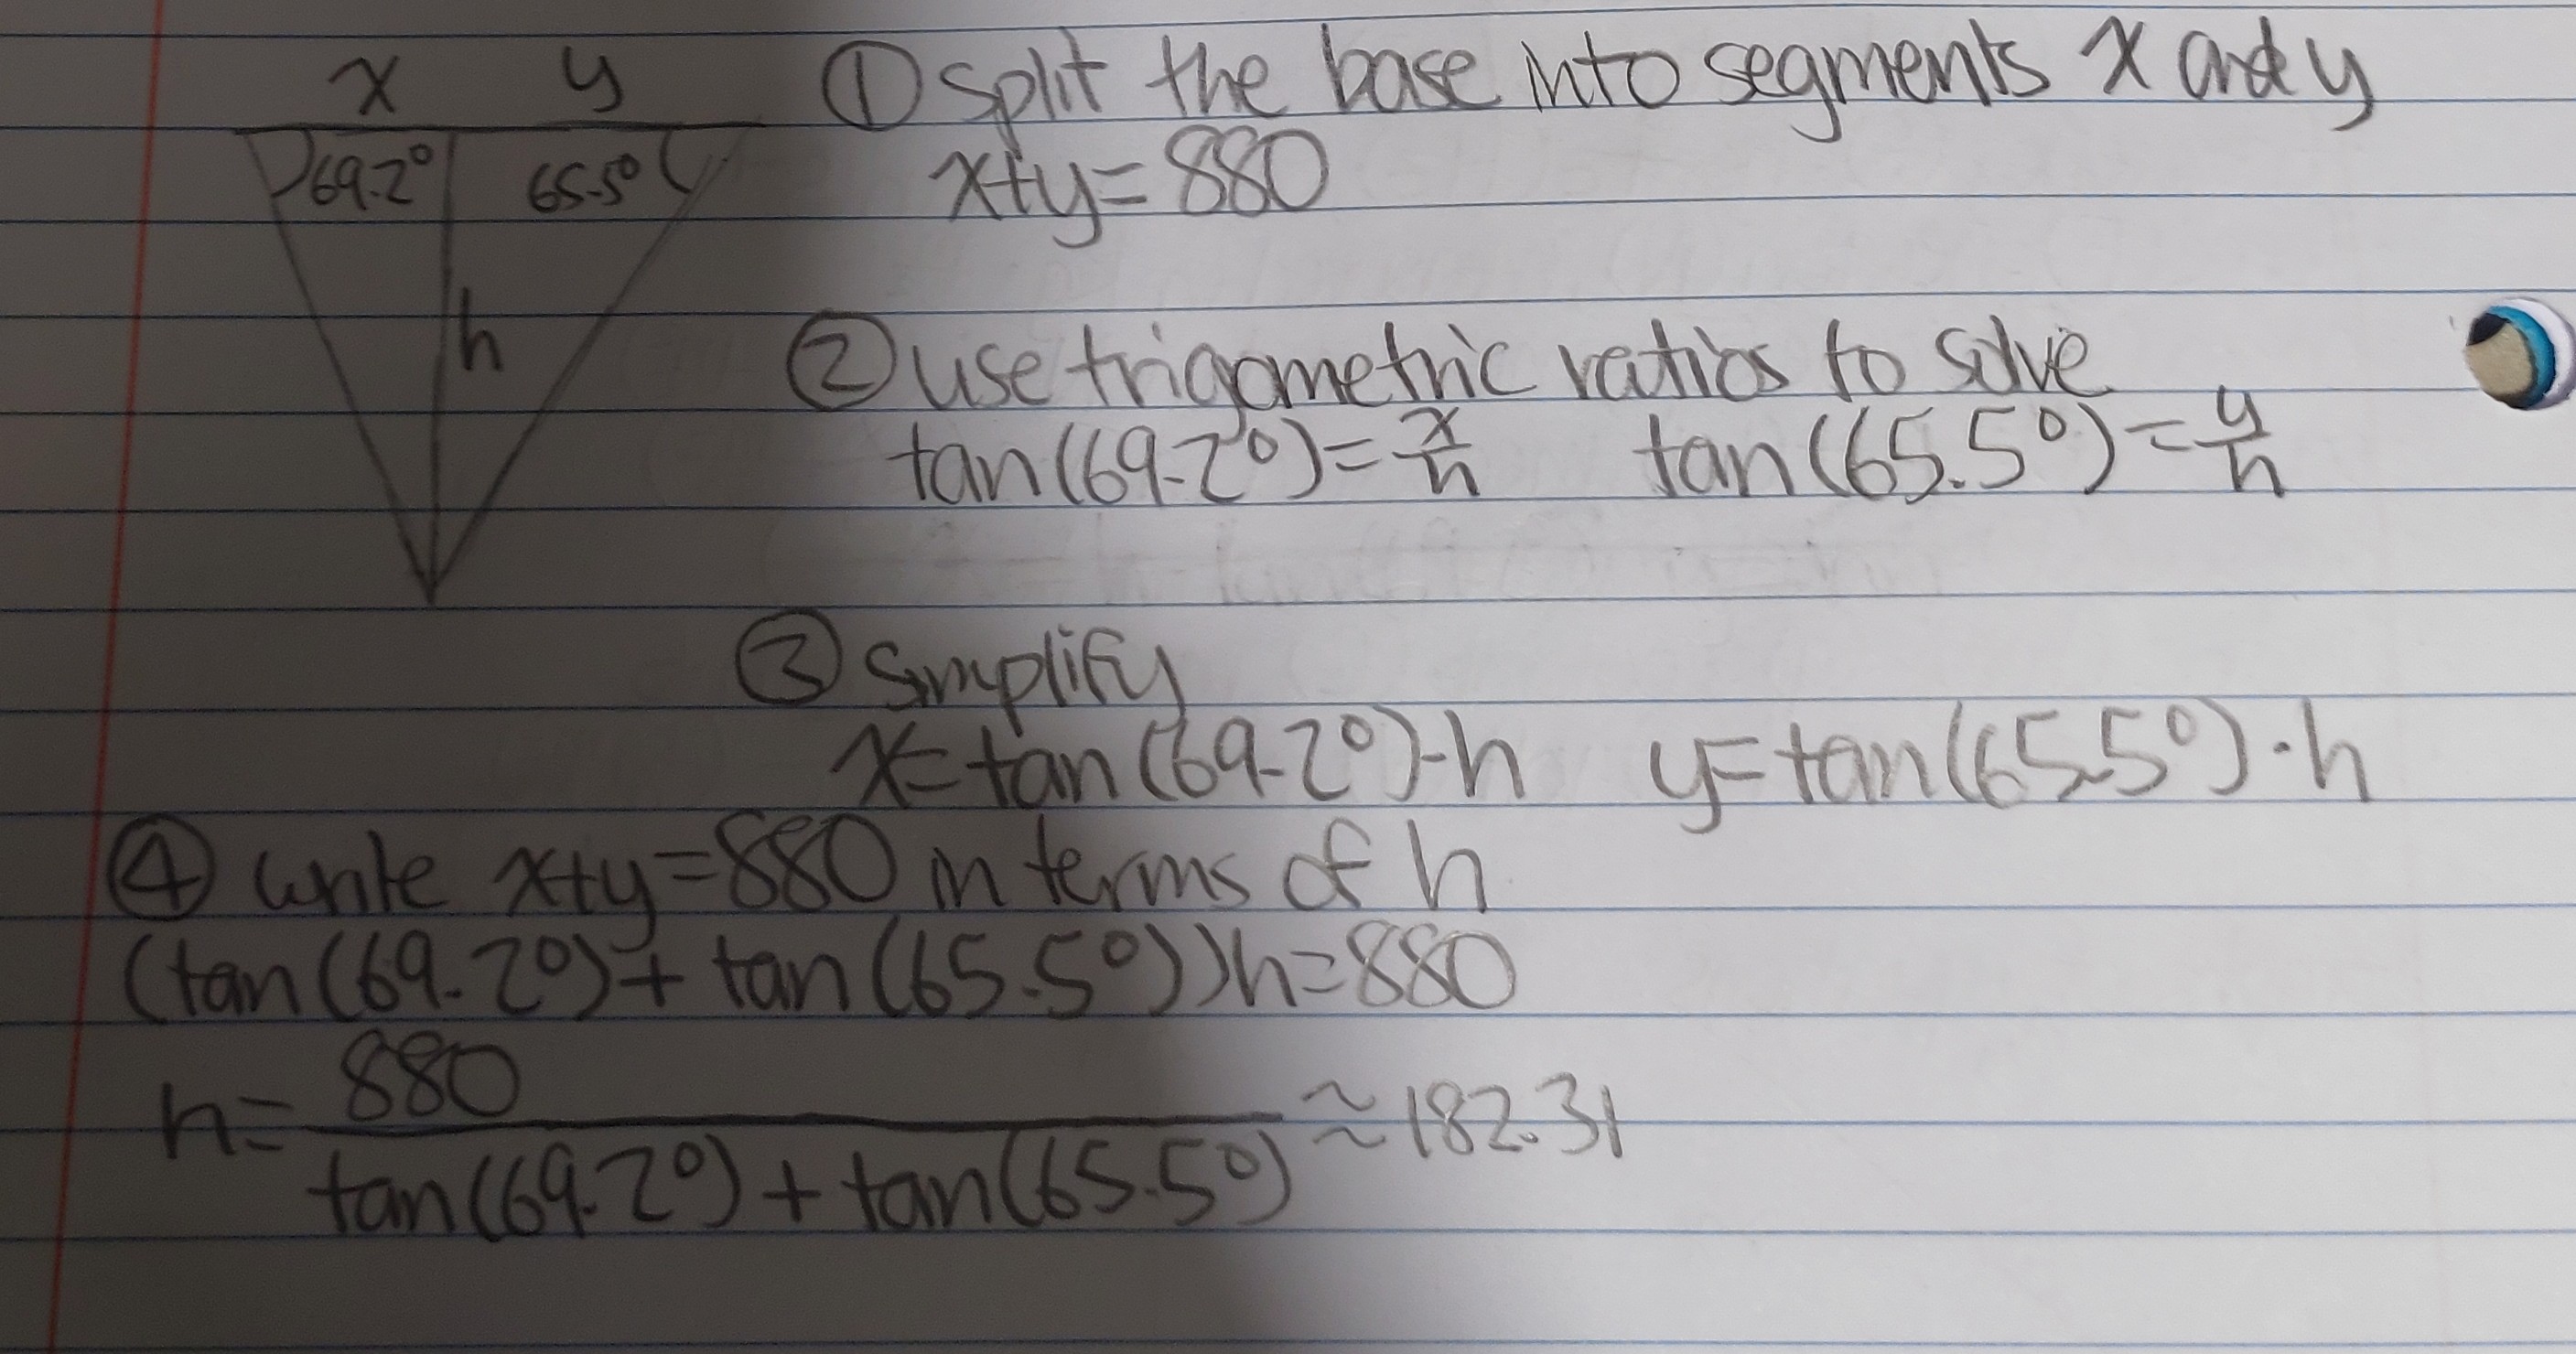 x y
69.2° 65.5°
h
① split the base into segments x and y
x+y=880
② use trigometric ratios to solve
tan(69.2°)=x/h tan(65.5°)=y/h
③ simplify
x=tan(69.2°)·h y=tan(65.5°)·h
④ write x+y=880 in terms of h
(tan(69.2°)+tan(65.5°))h=880
h=880/tan(69.2°)+tan(65.5°)≈182.31